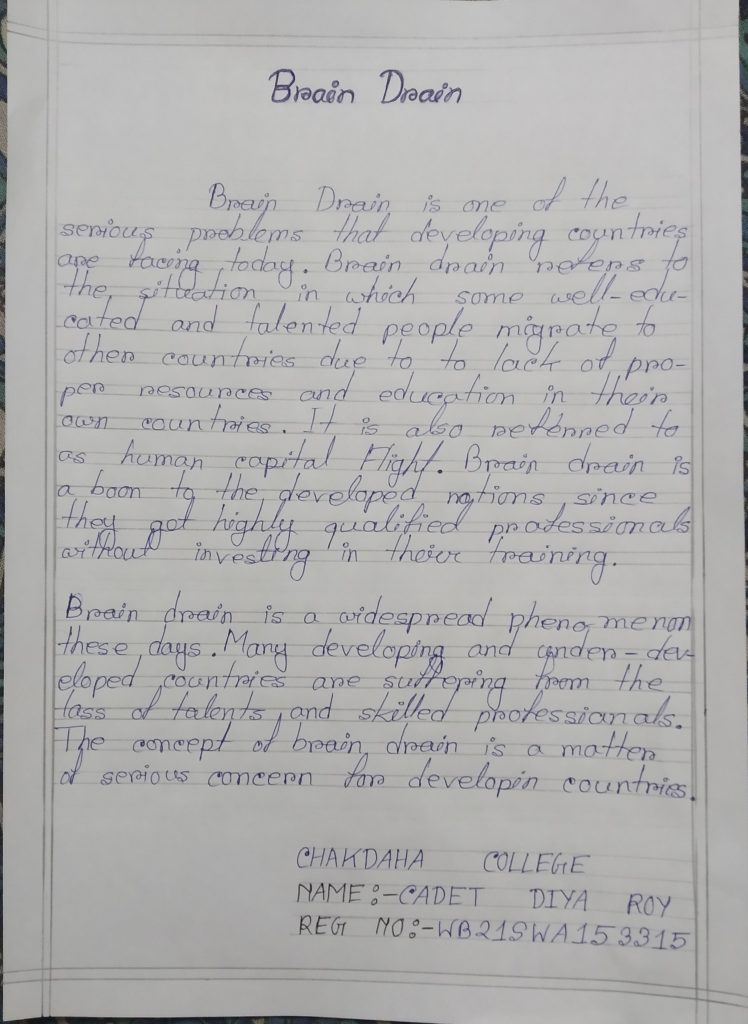 Brain Drain
Brain Drain is one of the
serious problems that developing countries
are facing today. Brain drain refers to
the situation in which some well-edu-
cated and talented people migrate to
other countries due to to lack of pro-
per resources and education in their
own countries. It is also referred to
as human capital Flight. Brain drain is
a boon to the developed nations since
they got highly qualified professionals
without investing in their training.
Brain drain is a widespread pheno-menon
these days. Many developing and under-dev-
eloped countries are suffering from the
loss of talents and skilled professionals.
The concept of brain drain is a matter
of serious concern for developin countries.
CHAKDAHA COLLEGE
NAME:-CADET DIYA ROY
REG NO:-WB21SWA153315